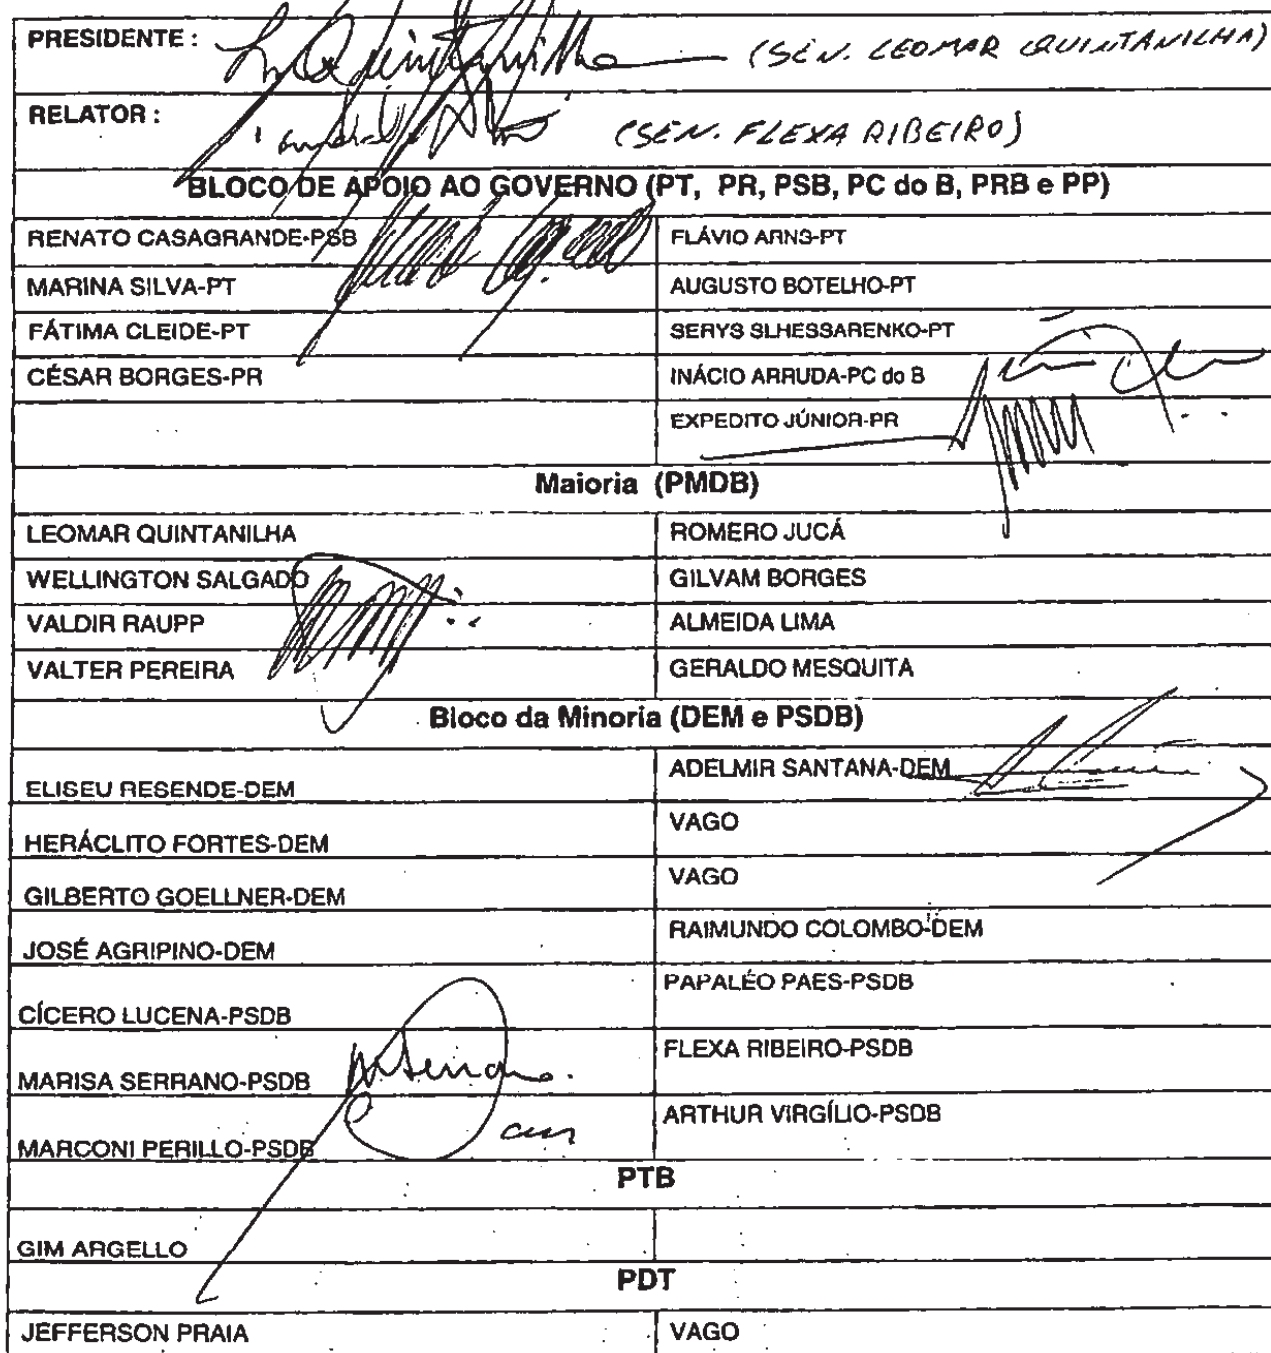 PRESIDENTE : L Quintanilha (SEN. LEOMAR QUINTANILHA)
RELATOR : (SEN. FLEXA RIBEIRO)
BLOCO DE APOIO AO GOVERNO (PT, PR, PSB, PC do B, PRB e PP)
RENATO CASAGRANDE-PSB FLÁVIO ARNS-PT
MARINA SILVA-PT AUGUSTO BOTELHO-PT
FÁTIMA CLEIDE-PT SERYS SLHESSARENKO-PT
CÉSAR BORGES-PR INÁCIO ARRUDA-PC do B
EXPEDITO JÚNIOR-PR
Maioria (PMDB)
LEOMAR QUINTANILHA ROMERO JUCÁ
WELLINGTON SALGADO GILVAM BORGES
VALDIR RAUPP ALMEIDA LIMA
VALTER PEREIRA GERALDO MESQUITA
Bloco da Minoria (DEM e PSDB)
ELISEU RESENDE-DEM ADELMIR SANTANA-DEM
HERÁCLITO FORTES-DEM VAGO
GILBERTO GOELLNER-DEM VAGO
JOSÉ AGRIPINO-DEM RAIMUNDO COLOMBO-DEM
CÍCERO LUCENA-PSDB PAPALÉO PAES-PSDB
MARISA SERRANO-PSDB MSerrano. FLEXA RIBEIRO-PSDB
MARCONI PERILLO-PSDB ARTHUR VIRGÍLIO-PSDB
PTB
GIM ARGELLO
PDT
JEFFERSON PRAIA VAGO